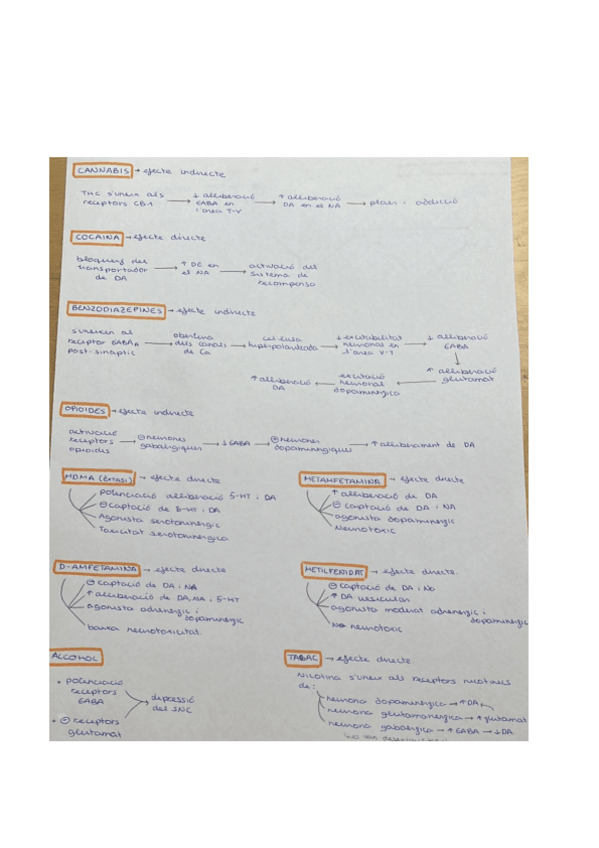 CANNABIS → efecte indirecte
THC s'uneix als receptors CB1 → ↓ alliberació GABA en l'àrea T-V → ↑ alliberació DA en el NA → plaer i addicció
COCAÏNA → efecte directe
bloqueig del transportador de DA → ↑ DE en el NA → activació del sistema de recompensa
BENZODIAZEPINES → efecte indirecte
s'uneixen al receptor GABA_A post-sinàptic → obertura dels canals de Ca → cèl·lula hiperpolaritzada → ↓ excitabilitat neurones en l'àrea V-T → ↓ alliberació GABA
↓
↑ alliberació DA ← excitació neuronal dopaminèrgica ← ↑ alliberació glutamat
OPIOIDES → efecte indirecte
activació receptors opioides → ⊖ neurones gabaèrgiques → ↓ GABA → ⊖ neurones dopaminèrgiques → ↑ alliberament de DA
MDMA (èxtasi) → efecte directe
Potenciació alliberació 5-HT i DA
⊖ captació de 5-HT i DA
Agonista serotoninèrgic
Toxicitat serotoninèrgica
METAMFETAMINA → efecte directe
↑ alliberació de DA
⊖ captació de DA i NA
agonista dopaminèrgic
Neurotòxic
D-AMFETAMINA → efecte directe
⊖ captació de DA i NA
↑ alliberació de DA, NA i 5-HT
agonista adrenèrgic i
dopaminèrgic
baixa neurotoxicitat
METILFENIDAT → efecte directe.
⊖ captació de DA i Na
↑ DA vesicular
agonista moderat adrenèrgic i
dopaminèrgic
No neurotòxic
ALCOHOL
• potenciació receptors GABA
• ⊖ receptors glutamat
depressió del SNC
TABAC → efecte directe
Nicotina s'uneix als receptors nicotínics
de:
neurona dopaminèrgica → ↑ DA
neurona glutamaèrgica → ↑ glutamat
neurona gabaèrgica → ↑ GABA → ↓ DA